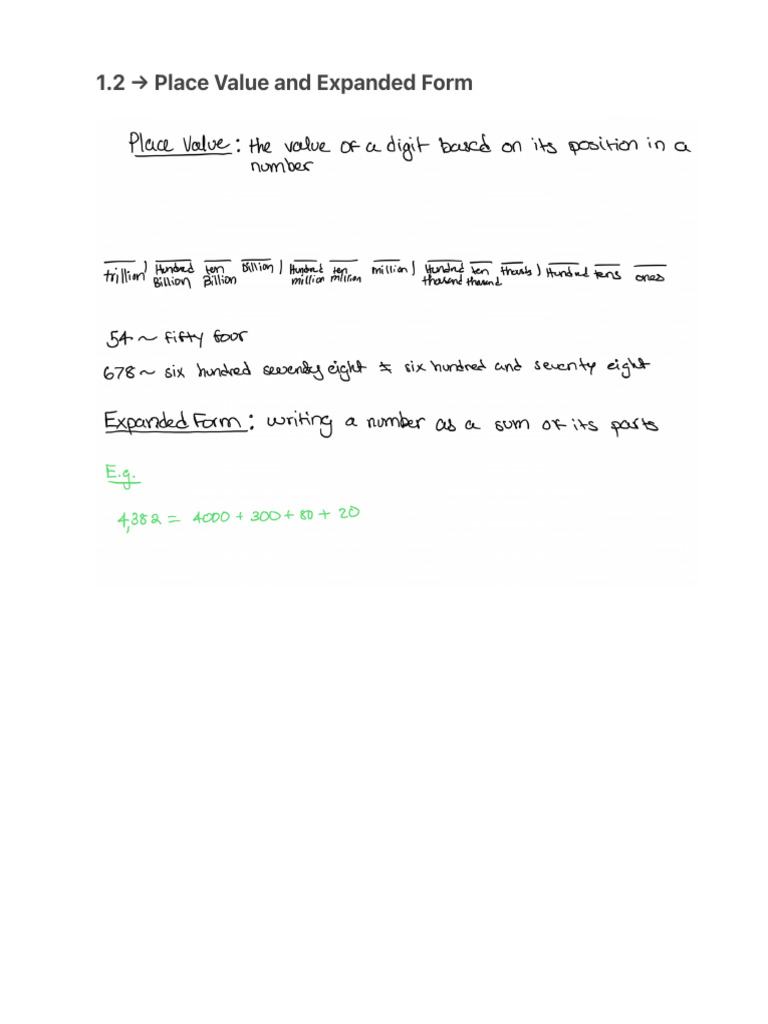 1.2 → Place Value and Expanded Form
Place Value: the value of a digit based on its position in a
number
trillion, Hundred Billion ten Billion Billion, Hundred million ten million million, Hundred thousand ten thousand thousands, Hundred tens ones
54 ~ fifty four
678 ~ six hundred seventy eight ≠ six hundred and seventy eight
Expanded Form: writing a number as a sum of its parts
E.g.
4,382 = 4000 + 300 + 80 + 20